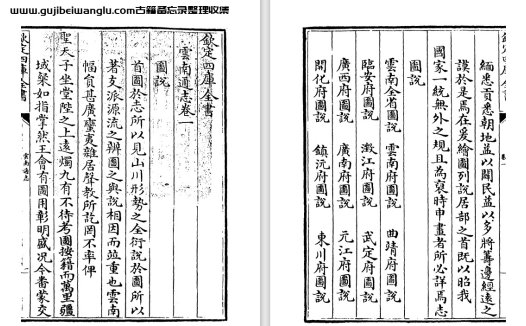 www.gujibeiwanglu.com古籍备忘录整理收集
緬悉貢悉朝地益以闢民益以多將籌邊經遠之
謨於是焉在爰繪圖列說居部之首既以昭我
國家一統無外之規且為裒時申畫者所必詳焉志
圖說
雲南全省圖說 雲南府圖說 曲靖府圖說
臨安府圖說 澂江府圖說 武定府圖說
廣西府圖說 廣南府圖說 元江府圖說
開化府圖說 鎮沅府圖說 東川府圖說
欽定四庫全書
雲南通志卷一
圖說
首圖於志所以見山川形勢之全衍說於圖所以
著支派源流之辨圖之與說相因而竝重也雲南
幅負甚廣蠻夷雜居聲教所訖罔不率俾
聖天子坐堂陛之上遠燭九有不待考圖按籍而萬里疆
域槃如指掌然王會有圖用彰明盛况今番蒙交
欽定四庫全書
雲南通志